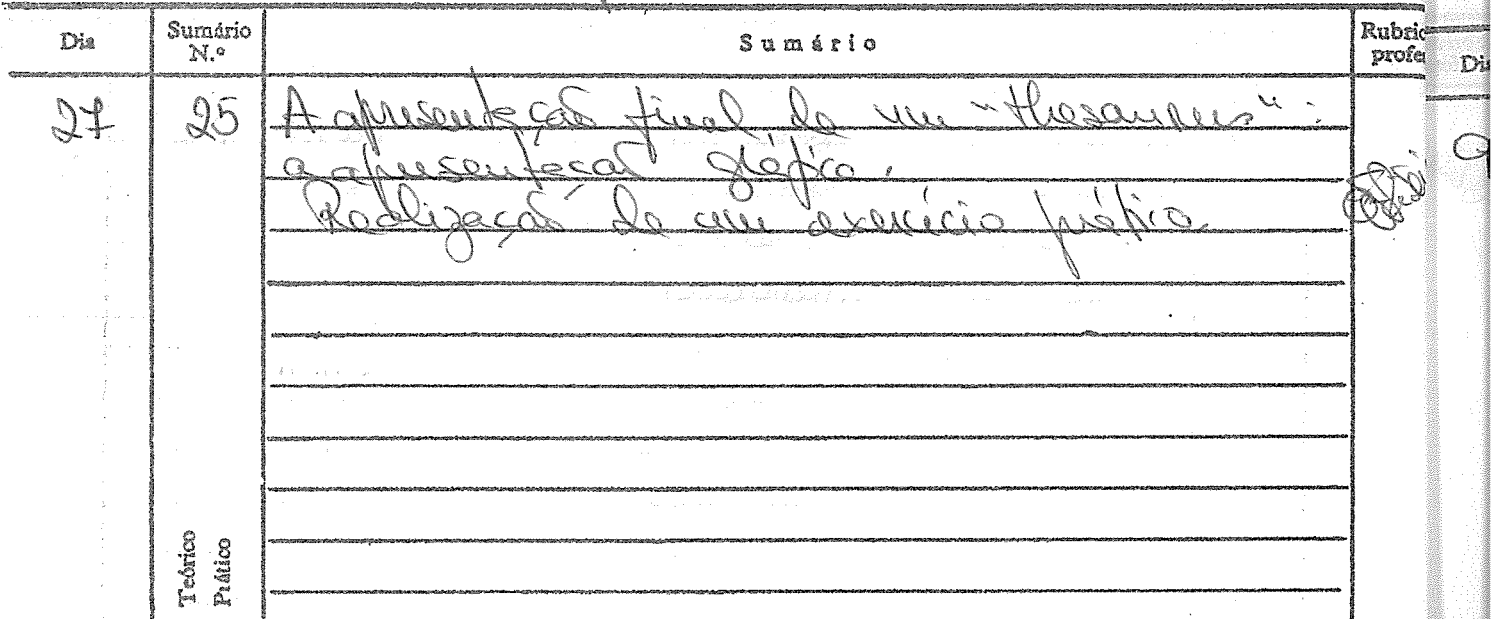 Dia Sumário N.º Sumário Rubric profe Di
27 25 A apresentação final de um "thesaurus":
a apresentação gráfica.
Realização de um exercício prático.
Teórico
Prático